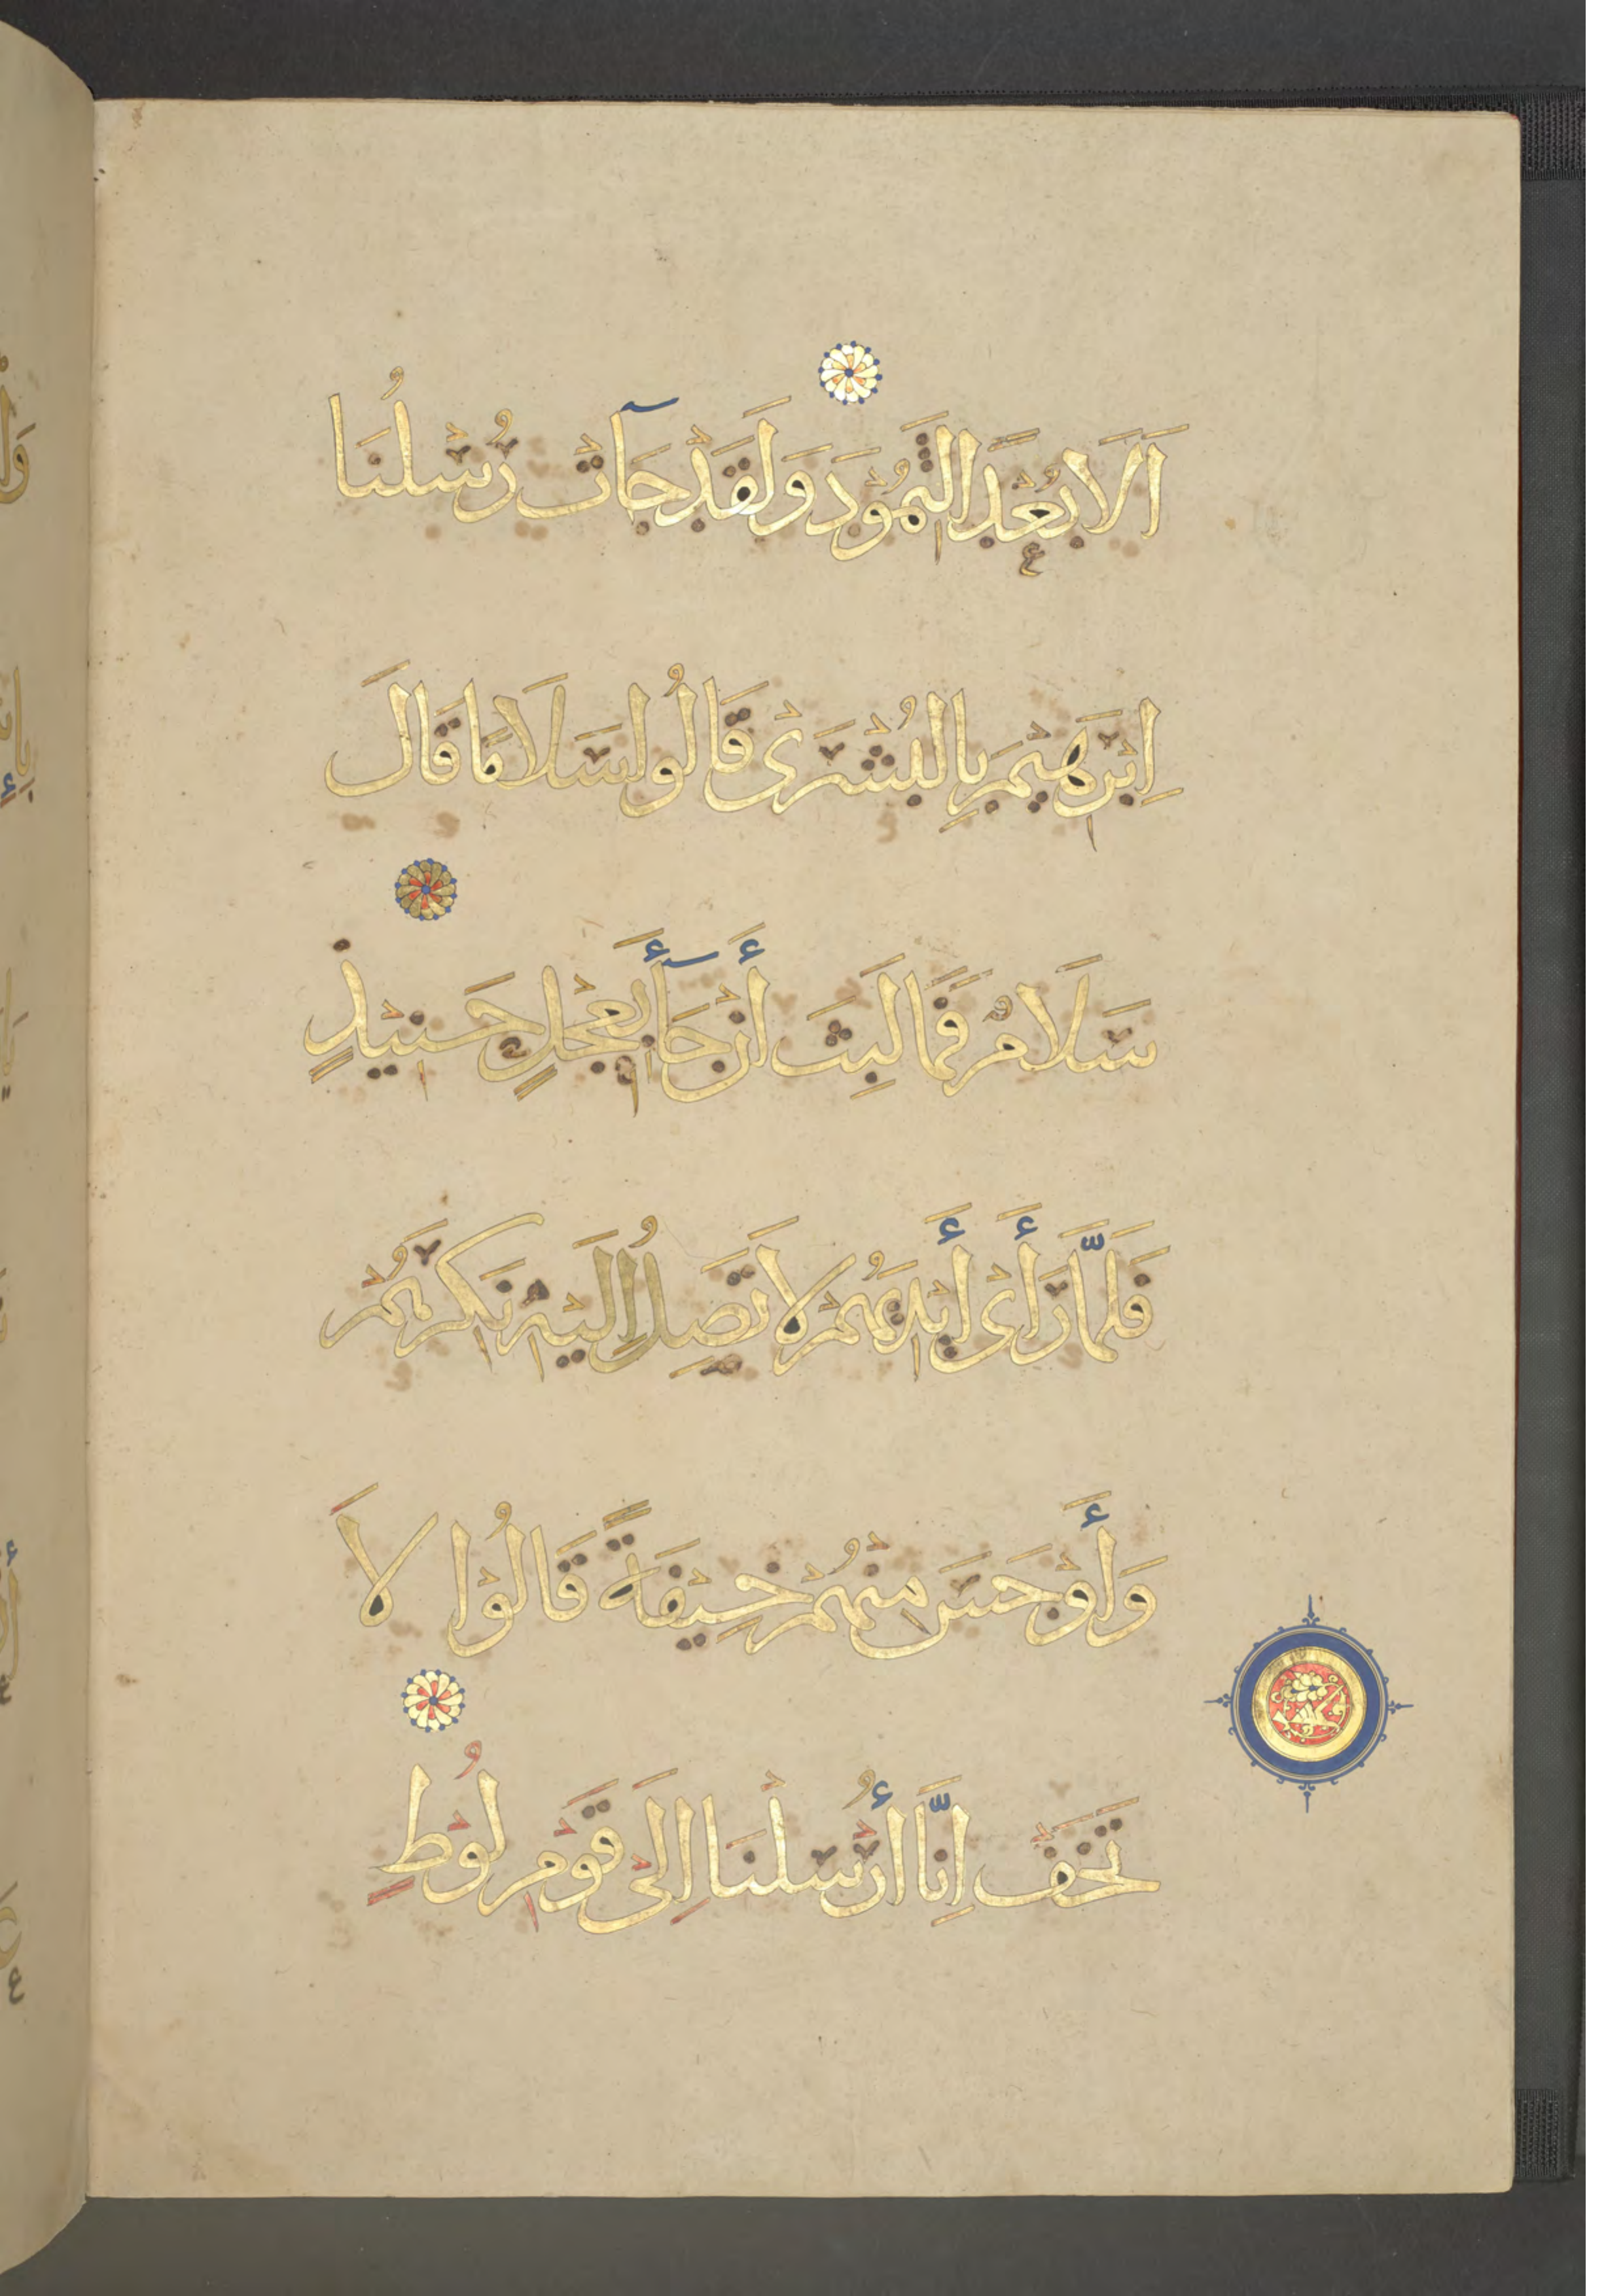 اَلَا بُعْدًا لِثَمُوْدَ وَلَقَدْ جَآتْ رُسْلُنَا
اِبْرَهِيْمَ بِالْبُشْرَى قَالُوا سَلَامًا قَالَ
سَلَامٌ فَمَا لَبِثَ أَنْ جَآأَ بِعِجْلٍ حَنِيْذٍ
فَلَمَّا رَأَى أَيْدِيَهُمْ لَا تَصِلُ اِلَيْهِ نَكِرَهُمْ
وَأَوْجَسَ مِنْهُمْ خِيْفَةً قَالُوْا لَا
تَخَفْ اِنَّا أُرْسِلْنَا اِلَى قَوْمِ لُوْطٍ